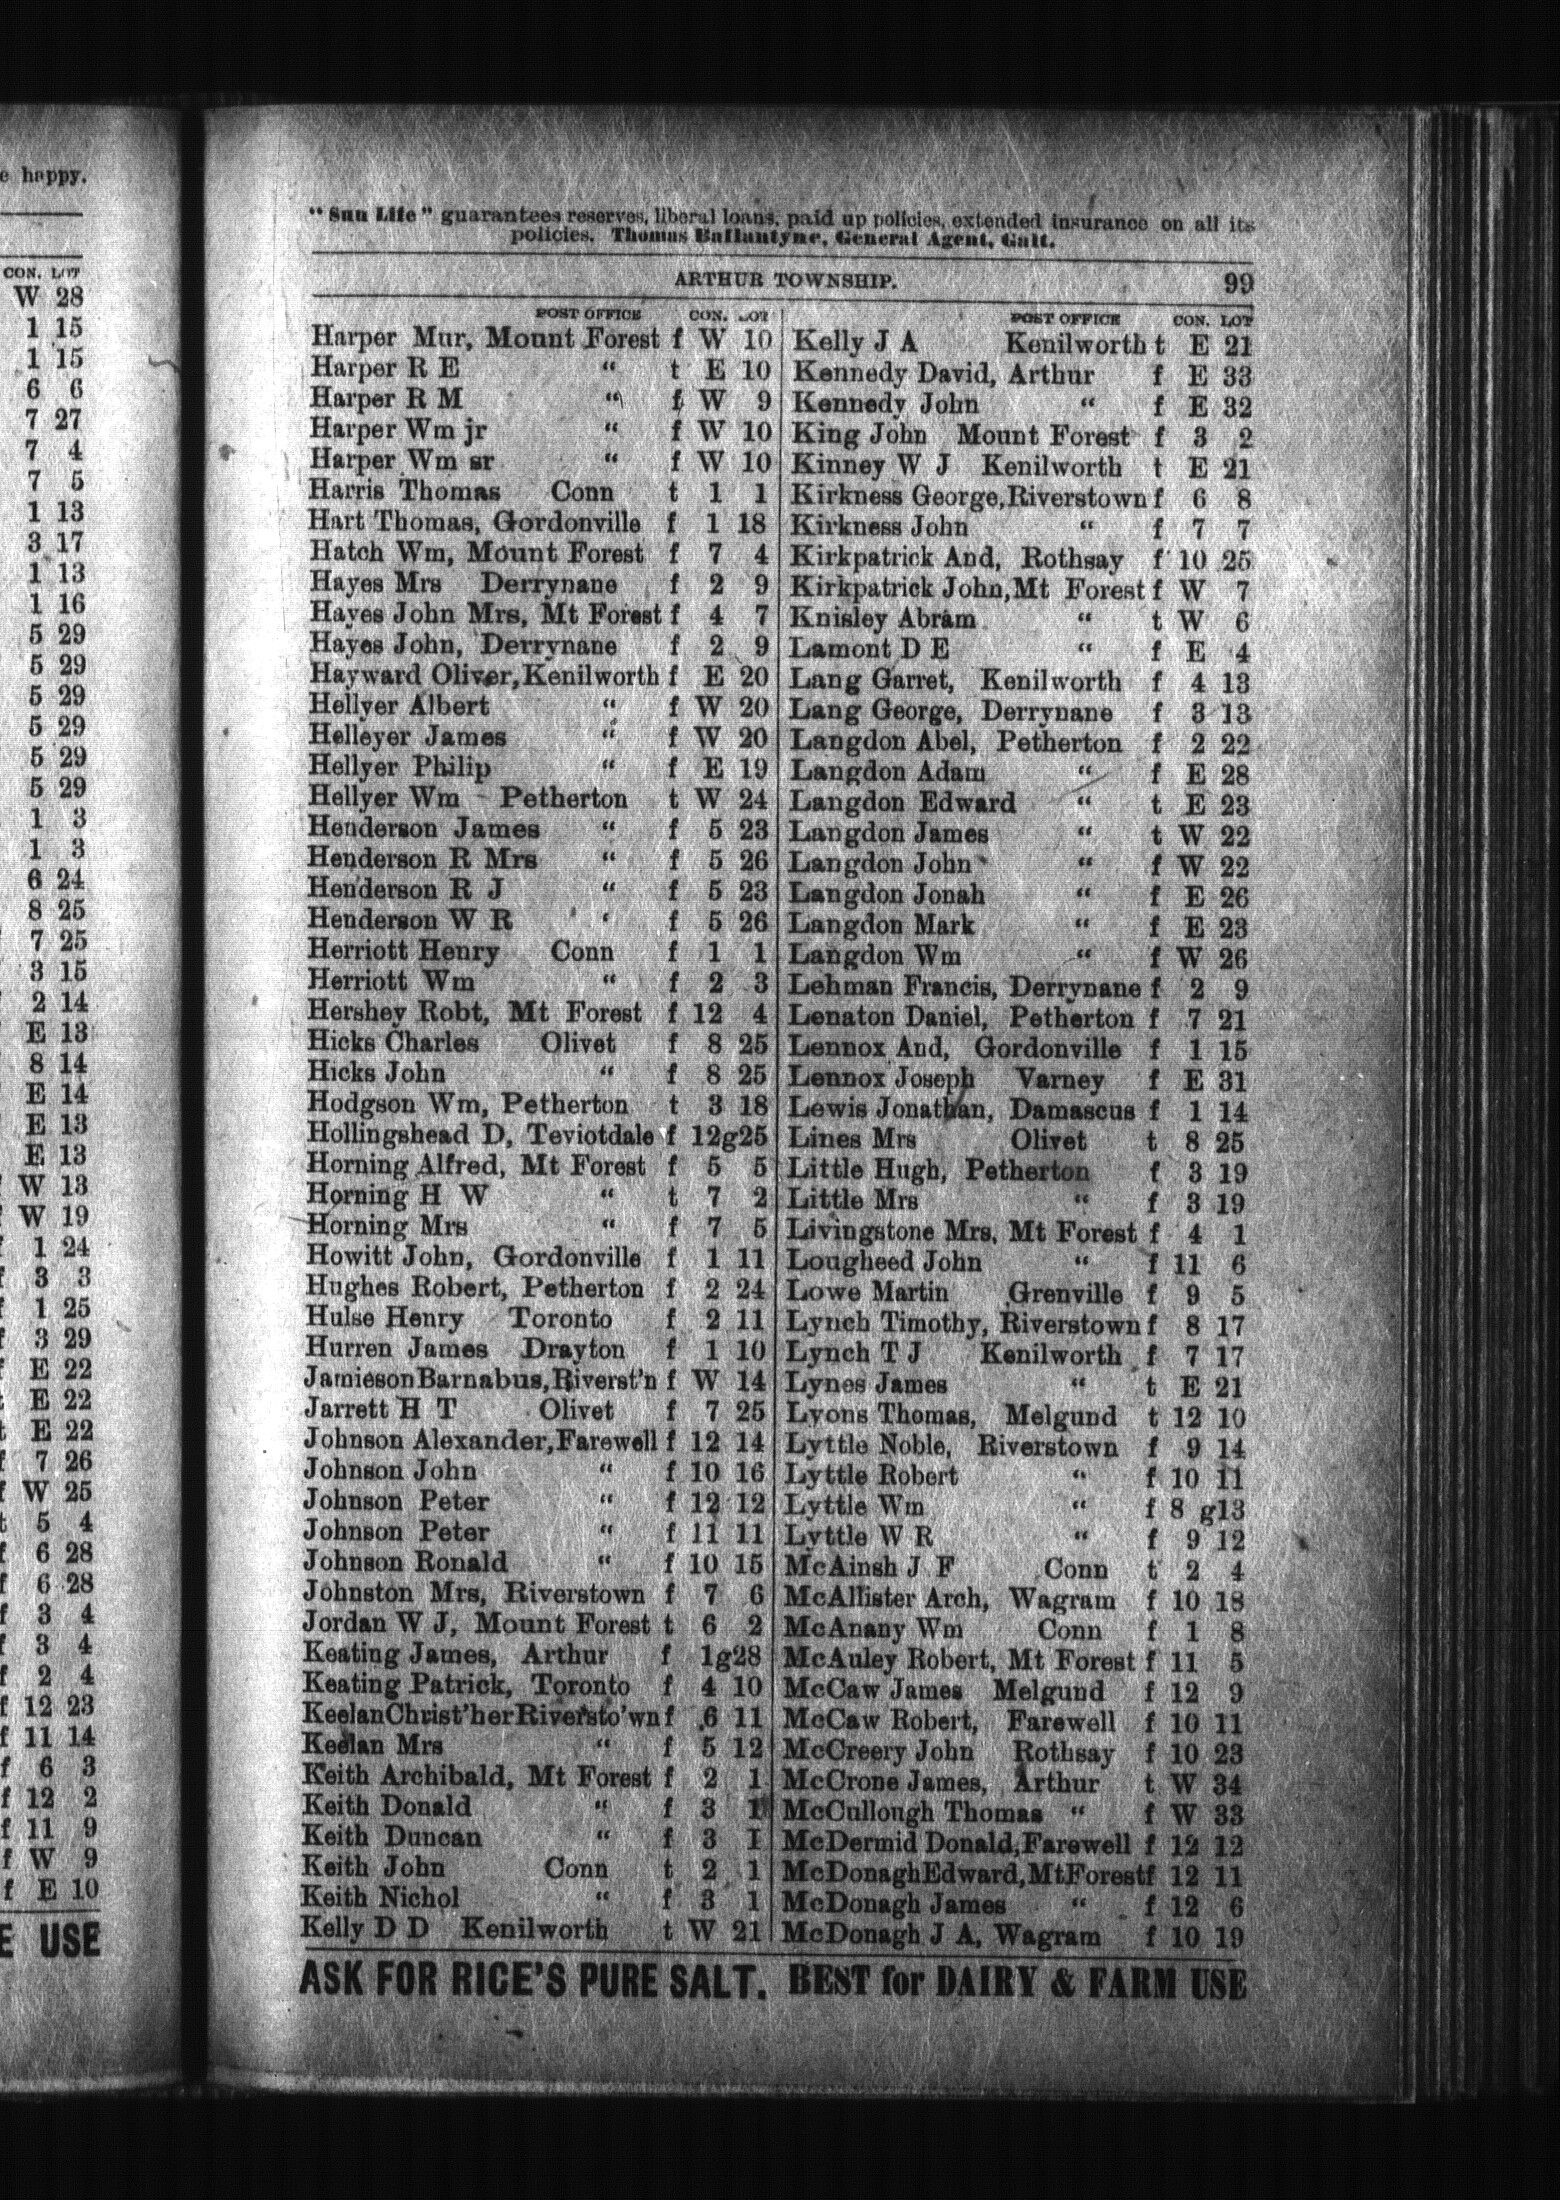 e happy.
CON. LOT
W 28
1 15
1 15
6 6
7 27
7 4
7 5
1 13
3 17
1 13
1 16
5 29
5 29
5 29
5 29
5 29
5 29
1 3
1 3
6 24
8 25
7 25
3 15
2 14
E 13
8 14
E 14
E 13
E 13
W 13
W 19
f 1 24
f 3 3
f 1 25
f 3 29
f E 22
t E 22
t E 22
f 7 26
f W 25
t 5 4
f 6 28
f 6 28
f 3 4
f 3 4
f 2 4
f 12 23
f 11 14
f 6 3
f 12 2
f 11 9
f W 9
f E 10
E USE
"Sun Life" guarantees reserves, liberal loans, paid up policies, extended insurance on all its
policies. Thomas Ballantyne, General Agent, Galt.
ARTHUR TOWNSHIP. 99
POST OFFICE CON. LOT
Harper Mur, Mount Forest f W 10
Harper R E " t E 10
Harper R M " f W 9
Harper Wm jr " f W 10
Harper Wm sr " f W 10
Harris Thomas Conn t 1 1
Hart Thomas, Gordonville f 1 18
Hatch Wm, Mount Forest f 7 4
Hayes Mrs Derrynane f 2 9
Hayes John Mrs, Mt Forest f 4 7
Hayes John, Derrynane f 2 9
Hayward Oliver, Kenilworth f E 20
Hellyer Albert " f W 20
Helleyer James " f W 20
Hellyer Philip " f E 19
Hellyer Wm Petherton t W 24
Henderson James " f 5 23
Henderson R Mrs " f 5 26
Henderson R J " f 5 23
Henderson W R " f 5 26
Herriott Henry Conn f 1 1
Herriott Wm " f 2 3
Hershey Robt, Mt Forest f 12 4
Hicks Charles Olivet f 8 25
Hicks John " f 8 25
Hodgson Wm, Petherton t 3 18
Hollingshead D, Teviotdale f 12g25
Horning Alfred, Mt Forest f 5 5
Horning H W " t 7 2
Horning Mrs " f 7 5
Howitt John, Gordonville f 1 11
Hughes Robert, Petherton f 2 24
Hulse Henry Toronto f 2 11
Hurren James Drayton f 1 10
Jamieson Barnabus, Riverst'n f W 14
Jarrett H T Olivet f 7 25
Johnson Alexander, Farewell f 12 14
Johnson John " f 10 16
Johnson Peter " f 12 12
Johnson Peter " f 11 11
Johnson Ronald " f 10 15
Johnston Mrs, Riverstown f 7 6
Jordan W J, Mount Forest t 6 2
Keating James, Arthur f 1g28
Keating Patrick, Toronto f 4 10
Keelan Christ'her Riversto'wn f 6 11
Keelan Mrs " f 5 12
Keith Archibald, Mt Forest f 2 1
Keith Donald " f 3 1
Keith Duncan " f 3 1
Keith John Conn t 2 1
Keith Nichol " f 3 1
Kelly D D Kenilworth t W 21
POST OFFICE CON. LOT
Kelly J A Kenilworth t E 21
Kennedy David, Arthur f E 33
Kennedy John " f E 32
King John Mount Forest f 3 2
Kinney W J Kenilworth t E 21
Kirkness George, Riverstown f 6 8
Kirkness John " f 7 7
Kirkpatrick And, Rothsay f 10 25
Kirkpatrick John, Mt Forest f W 7
Knisley Abram " t W 6
Lamont D E " f E 4
Lang Garret, Kenilworth f 4 13
Lang George, Derrynane f 3 13
Langdon Abel, Petherton f 2 22
Langdon Adam " f E 28
Langdon Edward " t E 23
Langdon James " t W 22
Langdon John " f W 22
Langdon Jonah " f E 26
Langdon Mark " f E 23
Langdon Wm " f W 26
Lehman Francis, Derrynane f 2 9
Lenaton Daniel, Petherton f 7 21
Lennox And, Gordonville f 1 15
Lennox Joseph Varney f E 31
Lewis Jonathan, Damascus f 1 14
Lines Mrs Olivet t 8 25
Little Hugh, Petherton f 3 19
Little Mrs " f 3 19
Livingstone Mrs, Mt Forest f 4 1
Lougheed John " f 11 6
Lowe Martin Grenville f 9 5
Lynch Timothy, Riverstown f 8 17
Lynch T J Kenilworth f 7 17
Lynes James " t E 21
Lyons Thomas, Melgund t 12 10
Lyttle Noble, Riverstown f 9 14
Lyttle Robert " f 10 11
Lyttle Wm " f 8 g13
Lyttle W R " f 9 12
McAinsh J F Conn t 2 4
McAllister Arch, Wagram f 10 18
McAnany Wm Conn f 1 8
McAuley Robert, Mt Forest f 11 5
McCaw James Melgund f 12 9
McCaw Robert, Farewell f 10 11
McCreery John Rothsay f 10 23
McCrone James, Arthur t W 34
McCullough Thomas " f W 33
McDermid Donald, Farewell f 12 12
McDonagh Edward, Mt Forest f 12 11
McDonagh James " f 12 6
McDonagh J A, Wagram f 10 19
ASK FOR RICE'S PURE SALT. BEST for DAIRY & FARM USE